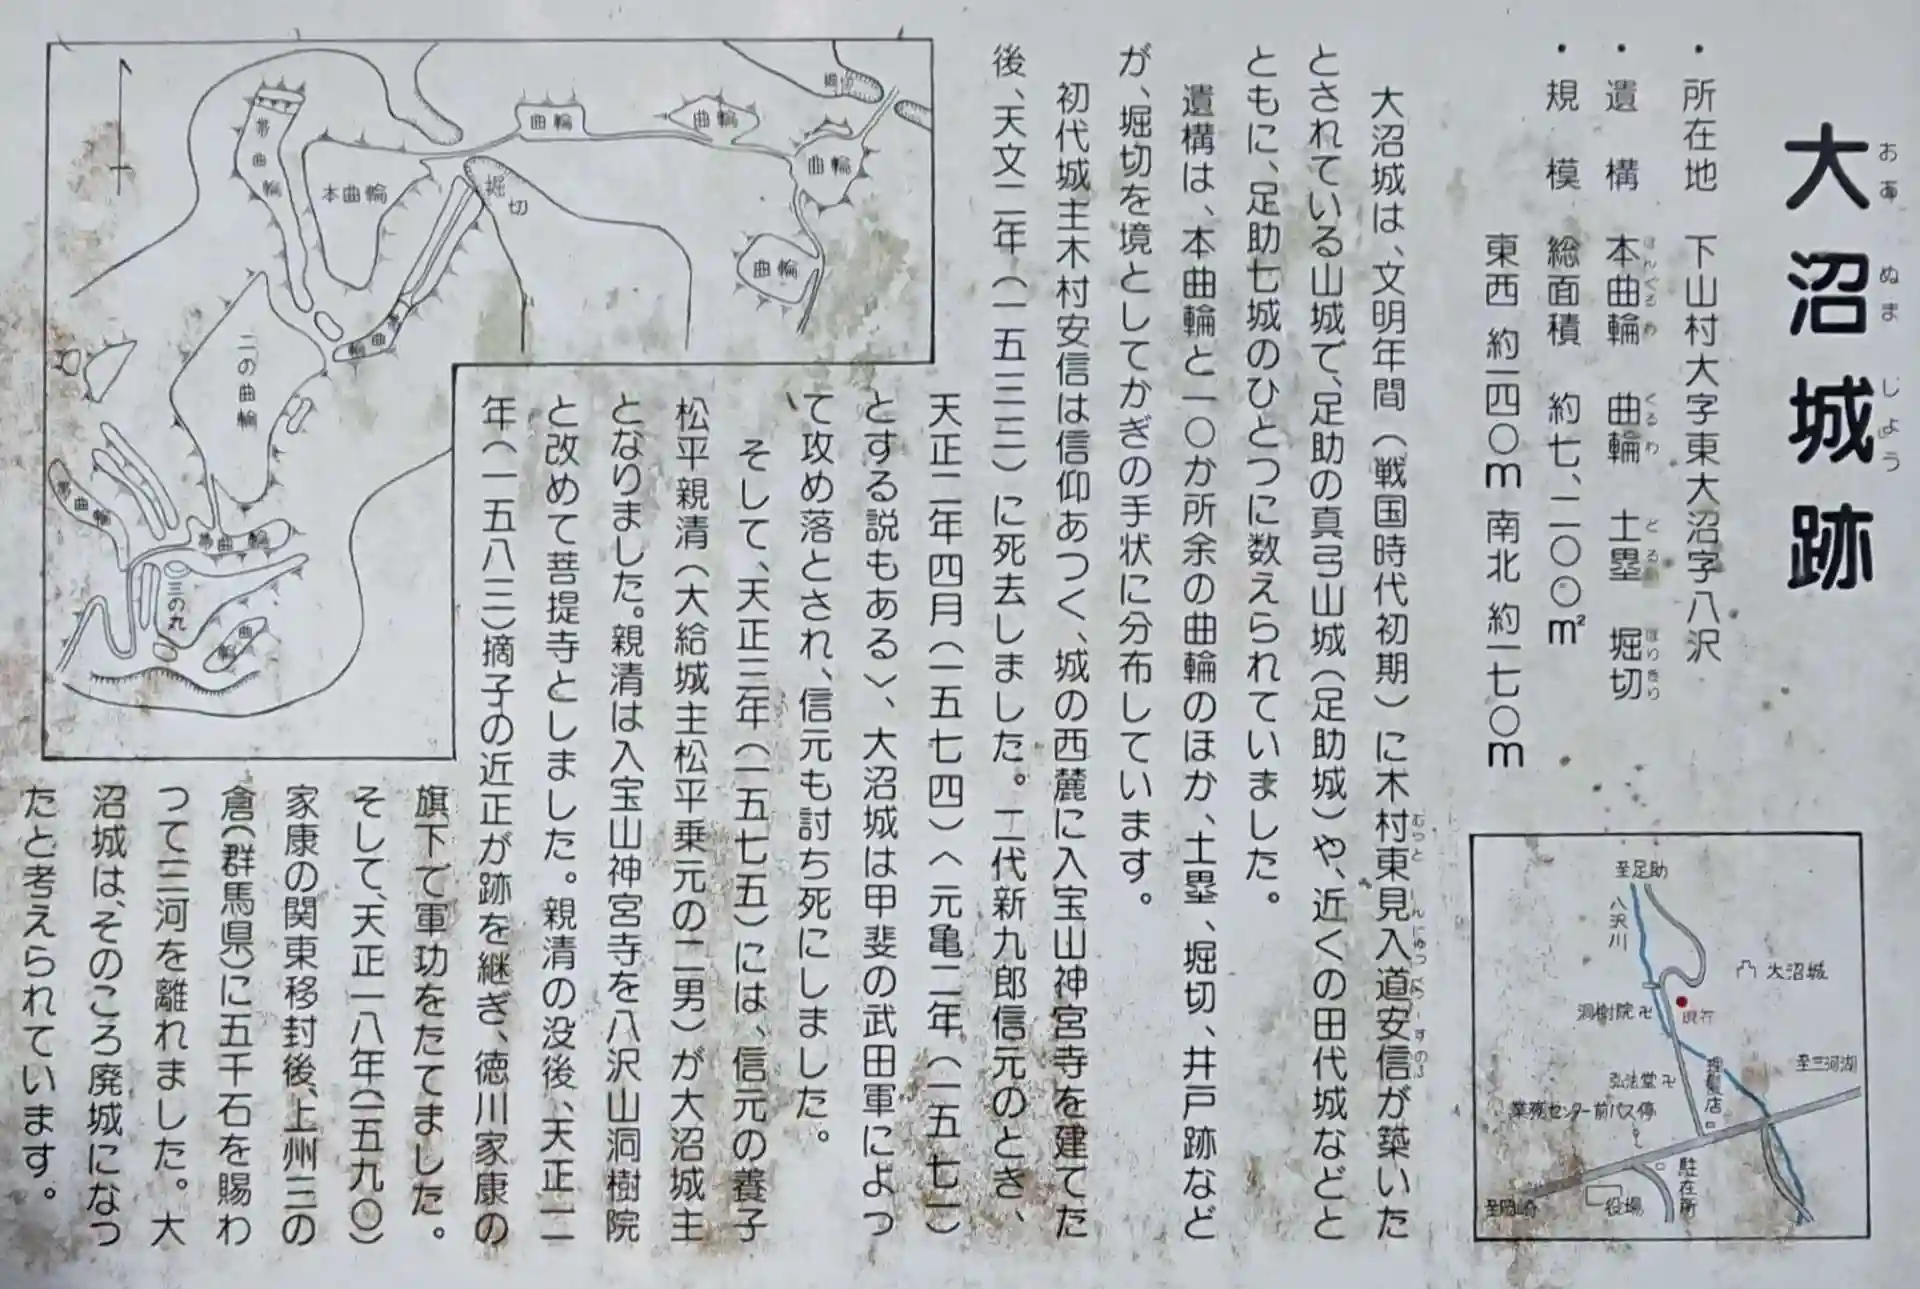 大沼城跡
おおぬまじょう
・所在地 下山村大字東大沼字八沢
・遺構 本曲輪 曲輪 土塁 堀切
ほんくるわ くるわ どるい ほりきり
・規模 総面積 約七、二〇〇㎡
東西 約一四〇m 南北 約一七〇m
大沼城は、文明年間(戦国時代初期)に木村東見入道安信が築いた
とされている山城で、足助の真弓山城(足助城)や、近くの田代城などと
ともに、足助七城のひとつに数えられていました。
遺構は、本曲輪と一〇か所余の曲輪のほか、土塁、堀切、井戸跡など
が、堀切を境としてかぎの手状に分布しています。
初代城主木村安信は信仰あつく、城の西麓に入宝山神宮寺を建てた
後、天文二年(一五三三)に死去しました。二代新九郎信元のとき、
天正二年四月(一五七四)〈元亀二年(一五七一)
とする説もある〉、大沼城は甲斐の武田軍によっ
て攻め落とされ、信元も討ち死にしました。
そして、天正三年(一五七五)には、信元の養子
松平親清(大給城主松平乗元の二男)が大沼城主
となりました。親清は入宝山神宮寺を八沢山洞樹院
と改めて菩提寺としました。親清の没後、天正一一
年(一五八三)摘子の近正が跡を継ぎ、徳川家康の
旗下で軍功をたてました。
そして、天正一八年(一五九〇)
家康の関東移封後、上州三の
倉(群馬県)に五千石を賜わ
って三河を離れました。大
沼城は、そのころ廃城になっ
たと考えられています。
至足助
八沢川
大沼城
洞樹院
現在
理髪店
至三河湖
弘法堂
業務センター前バス停
駐在所
役場
至岡崎
堀切
曲輪
曲輪
曲輪
曲輪
帯曲輪
本曲輪
堀切
帯曲輪
二の曲輪
帯曲輪
帯曲輪
三の丸
曲輪